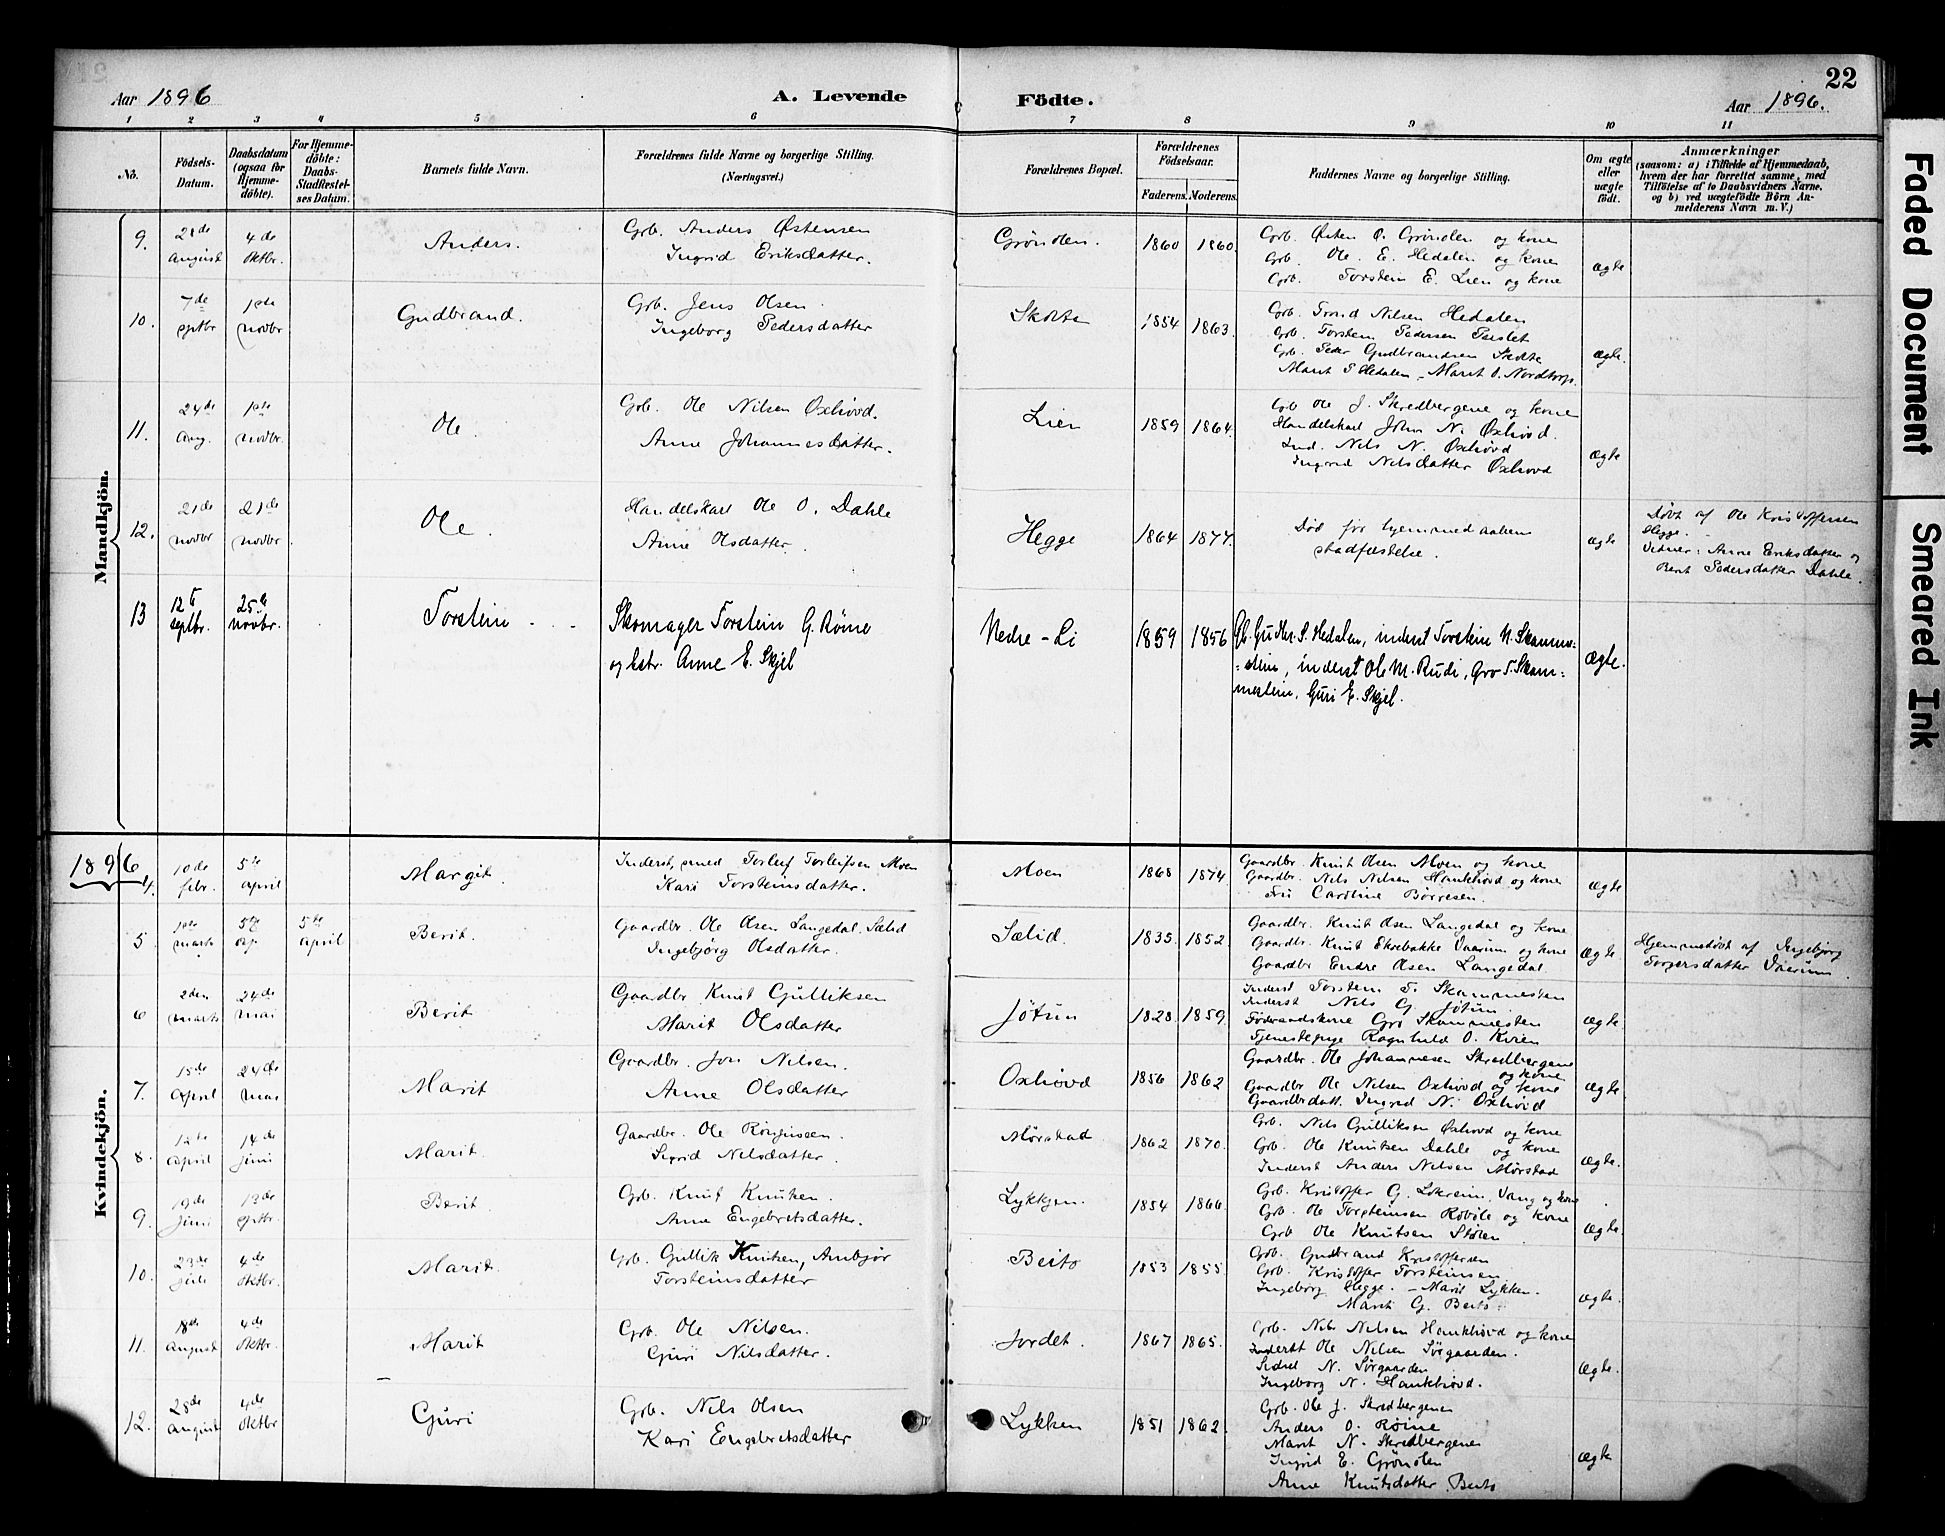 22
Aar 1896 A. Levende Födte. Aar 1896.
1 2 3 4 5 6 7 8 9 10 11
No. Födsels-Datum. Daabsdatum (ogsaa for Hjemme-döbte). For Hjemme-döbte: Daabs-Stadfæstel-ses Datum. Barnets fulde Navn. Forældrenes fulde Navne og borgerlige Stilling. (Næringsvei.) Forældrenes Bopæl. Forældrenes Födselsaar. Faderens. Moderens. Faddernes Navne og borgerlige Stilling. Om ægte eller uægte födt. Anmærkninger (saasom: a) i Tilfælde af Hjemmedaab, hvem der har forrettet samme, med Tilföielse af to Daabsvidners Navne, og b) ved uægtefödte Börn An-melderens Navn m. V.)
Mandkjön.
9. 21de august 4de oktbr. Anders. Grb. Anders Østensen Grönolen. 1860 1860. Grb. Østen O. Grönolen og kone
Ingrid Eriksdatter. Grb. Ole E. Hedalen og kone
Grb. Torstein E. Lien og kone ægte
10. 7de septbr 1ste novbr Gudbrand. Grb. Jens Olsen Skotte 1854 1863. Grb. Trond Nilsen Hedalen
Ingeborg Pedersdatter Grb. Torstein Pedersen
Grb. Peder Gudbrandsen Skotte ægte.
Marit Hedalen - Marit O. Nordtorp.
11. 24de Aug. 1ste novbr. Ole. Grb. Ole Nilsen Oxhövd. Lien 1859 1864. Grb Ole J. Skredbergene og kone
Anne Johannesdatter. Handelskarl John N. Øxhövd.
Ind. Nils N. Øxhövd ægte
Ingrid Nilsdatter Øxhövd
12. 21de novbr 21de novbr. Ole. Handelskarl Ole O. Dahle Hegge 1864 1877. Död för hjemmedaabens ægte Dövt af Ole Kristoffersen
Anne Olsdatter. stadfæstelse. Hegge.
Vidner: Anne Eriksdatter og
Berit Pedersdatter Dahle.
13 12te septbr. 25de novbr. Torstein - - - Skomager Torstein G. Röine Nedre-Li 1859 1856 Gb. Gudbr. S. Hedalen, inderst Torstein N. Skamme-
og hstr. Anne E. Skjel =stein, inderst Ole M. Rudi, Gro T. Skam= ægte.
mestein, Guri E. Skjel.
1896
Kvindekjön.
4. 10de febr. 5te april Margit. Inderst, smed Torleif Torleifsen Moen Moen 1868 1874. Gaardbr. Knut Olsen Moen og kone
Kari Torsteinsdatter. Gaardbr. Nils Nilsen Haukhövd og kone ægte
Fru Caroline Börresen.
5. 1ste marts 5te ap. 5te april Berit. Gaardbr. Ole Olsen Langedal Sælid Sælid. 1835. 1852. Gaardbr. Knut Olsen Langedal og kone
Ingebjörg Olsdatter. Gaardbr. Knut Ekrebakke Vaarum og kone ægte Hjemmedövt af Ingebjörg
Gaardbr Endre Olsen Langedal
6 2den marts 24de mai Berit. Gaardbr. Knut Gulliksen Jötun 1828 1859. Inderst Torstein T. Skammesten
Marit Olsdatter Inderst Nils G. Jötun. ægte.
Föderaadskone Gro Skammesten
Tjenestepige Ragnhild O. Kvien
7. 18de April 24de mai Marit Gaardbr. Jon Nilsen. Oxhövd 1856 1862 Gaardbr. Ole Johannesen Skredbergene
Anne Olsdatter og kone
Gaardbr Ole Nilsen Oxhövd og kone ægte
Gaardbrdatt. Ingrid N. Oxhövd
8. 12te April 14de Juni Marit. Gaardbr. Ole Mörstad 1862 1870. Grb. Nils Gulliksen Øxhövd og kone
Sigrid Nilsdatter. Grb. Ole Knutsen Dahle og kone
Inderst Anders Nilsen Mörstad ægte.
9. 19de Juni 13de sptbr. Berit. Grb. Knut Knutsen. Lykkjen. 1854 1866. Grb. Kristoffer G. Vang og kone
Anne Engebretsdatter. Grb. Ole Torsteinsen Roböle og kone
Grb Ole Knutsen Stölen ægte.
10. 23de 4de oktbr. Marit. Grb. Gullik Knutsen, Ambjör Beito 1853 1855. Grb. Gudbrand Kristoffersen
Torsteinsdatter Grb. Kristoffer Torsteinsen
Ingeborg Hegge. - Marit Lykken. ægte.
Marit G. Beito.
11. 18de August 4de oktbr. Marit Grb. Ole Nilsen. Jordet. 1867 1865. Grb. Nils Nilsen Haukhövd og kone
Guri Nilsdatter. Inderst Ole Nilsen Sörgaarden.
Sidsel N. Sörgaarden ægte.
Ingeborg N. Haukhövd.
12. 28de august 4de oktbr Guri Grb. Nils Olsen Lykken 1851 1862. Grb. Ole J. Skredbergene
Kari Engebretsdatter Anders O. Röine
Marit N. Skredbergene
Ingrid E. Grönolen ægte
Anne Knutsdatter Beito
Faded Document
Smeared Ink